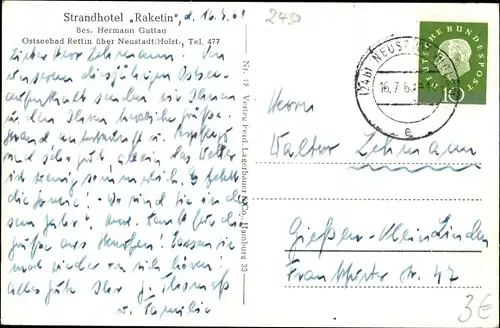 Strandhotel „Raketin", d. 16.7.61
Bes. Hermann Guttau
Ostseebad Rettin über Neustadt/Holst., Tel. 477
Lieber Herr Lehmann. Von
unserem diesjährigen Ostsee-
aufenthalt senden wir Ihnen
u. den Ihren herzliche Grüße.
Strand, Unterkunft u. Verpflegg
sind sehr gut, allein das Wetter
ist wenig sommerlich. Es fehlt
die Sonne! Wo sind Sie in die-
sem Jahr? Dank für die
Grüße aus München! Lassen Sie
mal wieder von sich hören!
Alles Gute Ihr J. Thomas
u. Familie
Nr. 17 Verlag Ferd. Lagerbauer & Co., Hamburg 33
2430
(24b) NEUSTADT
16.7.61
e
DEUTSCHE BUNDESPOST
10
Herrn
Walter Lehmann
Gießen-Kleinlinden
Frankfurter Str. 47
3€